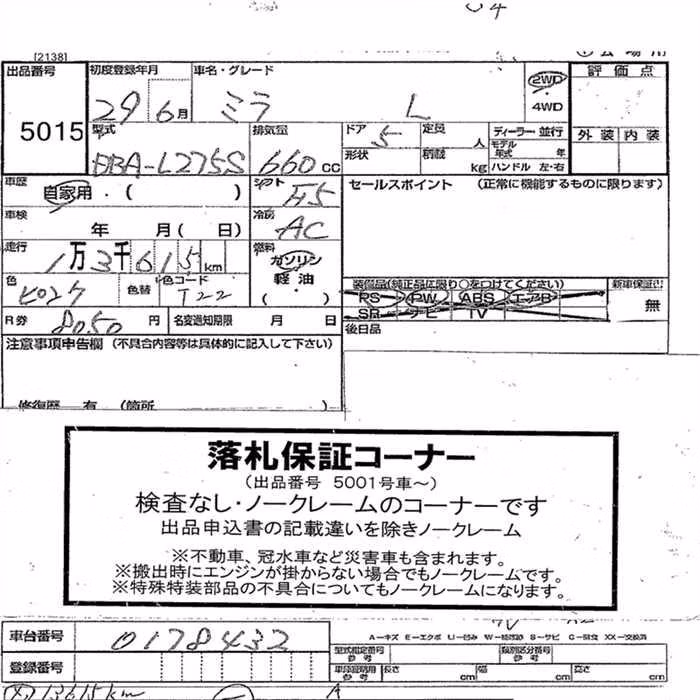 [2138]
出品番号 5015
初度登録年月 29 6月
車名・グレード ミラ L
2WD・4WD
評価点
外装 内装
型式 DBA-L275S
排気量 660 CC
ドア 5
定員 人
ディーラー 並行
形状
積載 kg
モデル年式 年
ハンドル 左・右
車歴 自家用・( )
シフト F5
セールスポイント (正常に機能するものに限ります)
車検 年 月( 日)
冷房 AC
走行 1万3千615km
燃料 ガソリン 軽油 ・( )
色 色替 色コード T22
装備品(純正品に限り○を付けてください)
PS PW ABS エアB
SR ナビ TV
新車保証 無
R券 8050円
名変通知期限 月 日
後日品
注意事項申告欄 (不具合内容等は具体的に記入して下さい)
修復歴 有 (箇所 )
落札保証コーナー
(出品番号 5001号車~)
検査なし・ノークレームのコーナーです
出品申込書の記載違いを除きノークレーム
※不動車、冠水車など災害車も含まれます。
※搬出時にエンジンが掛からない場合でもノークレームです。
※特殊特装部品の不具合についてもノークレームになります。
車台番号 0178432
登録番号
型式指定番号 参考
類別区分番号 参考
車検証明用 参考 長さ cm 幅 cm 高さ cm
13615km
A